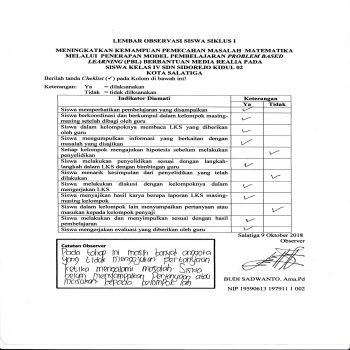 LEMBAR OBSERVASI SISWA SIKLUS I
MENINGKATKAN KEMAMPUAN PEMECAHAN MASALAH MATEMATIKA
MELALUI PENERAPAN MODEL PEMBELAJARAN PROBLEM BASED
LEARNING (PBL) BERBANTUAN MEDIA REALIA PADA
SISWA KELAS IV SDN SIDOREJO KIDUL 02
KOTA SALATIGA
Berilah tanda Checklist (✓) pada Kolom di bawah ini!
Keterangan: Ya = dilaksanakan
Tidak = tidak dilaksanakan
Indikator Diamati Keterangan
Ya Tidak
Siswa memperhatikan pembelajaran yang disampaikan ✓
Siswa berkoordinasi dan berkumpul dalam kelompok masing-
masing setelah dibagi oleh guru ✓
Siswa dalam kelompoknya membaca LKS yang diberikan
oleh guru ✓
Siswa mengumpulkan informasi yang berkaitan dengan
masalah yang disajikan ✓
Setiap kelompok mengajukan hipotesis sebelum melakukan
penyelidikan ✓
Siswa melakukan penyelidikan sesuai dengan langkah-
langkah dalam LKS dengan bimbingan guru ✓
Siswa menarik kesimpulan dari penyelidikan yang telah
dilakukan ✓
Siswa melakukan diskusi dengan kelompoknya dalam
mengerjakan LKS ✓
Siswa menyajikan hasil karya berupa laporan LKS masing-
masing kelompok ✓
Siswa dalam kelompok lain menyampaikan pertanyaan atau
masukan kepada kelompok penyaji ✓
Siswa melakukan dan menyimpulkan sesuai dengan hasil
pembelajaran ✓
Siswa mengerjakan evaluasi yang diberikan oleh guru ✓
Salatiga 9 Oktober 2018
Observer
Catatan Observer
Pada tahap ini masih banyak anggota
yang tidak mengajukan pertanyaan
ketika mengalami masalah. Siswa
belum menyampaikan pertanyaan atau
masukan kepada kelompok lain
BUDI SADWANTO, Ama.Pd
NIP 19590613 197911 1 002